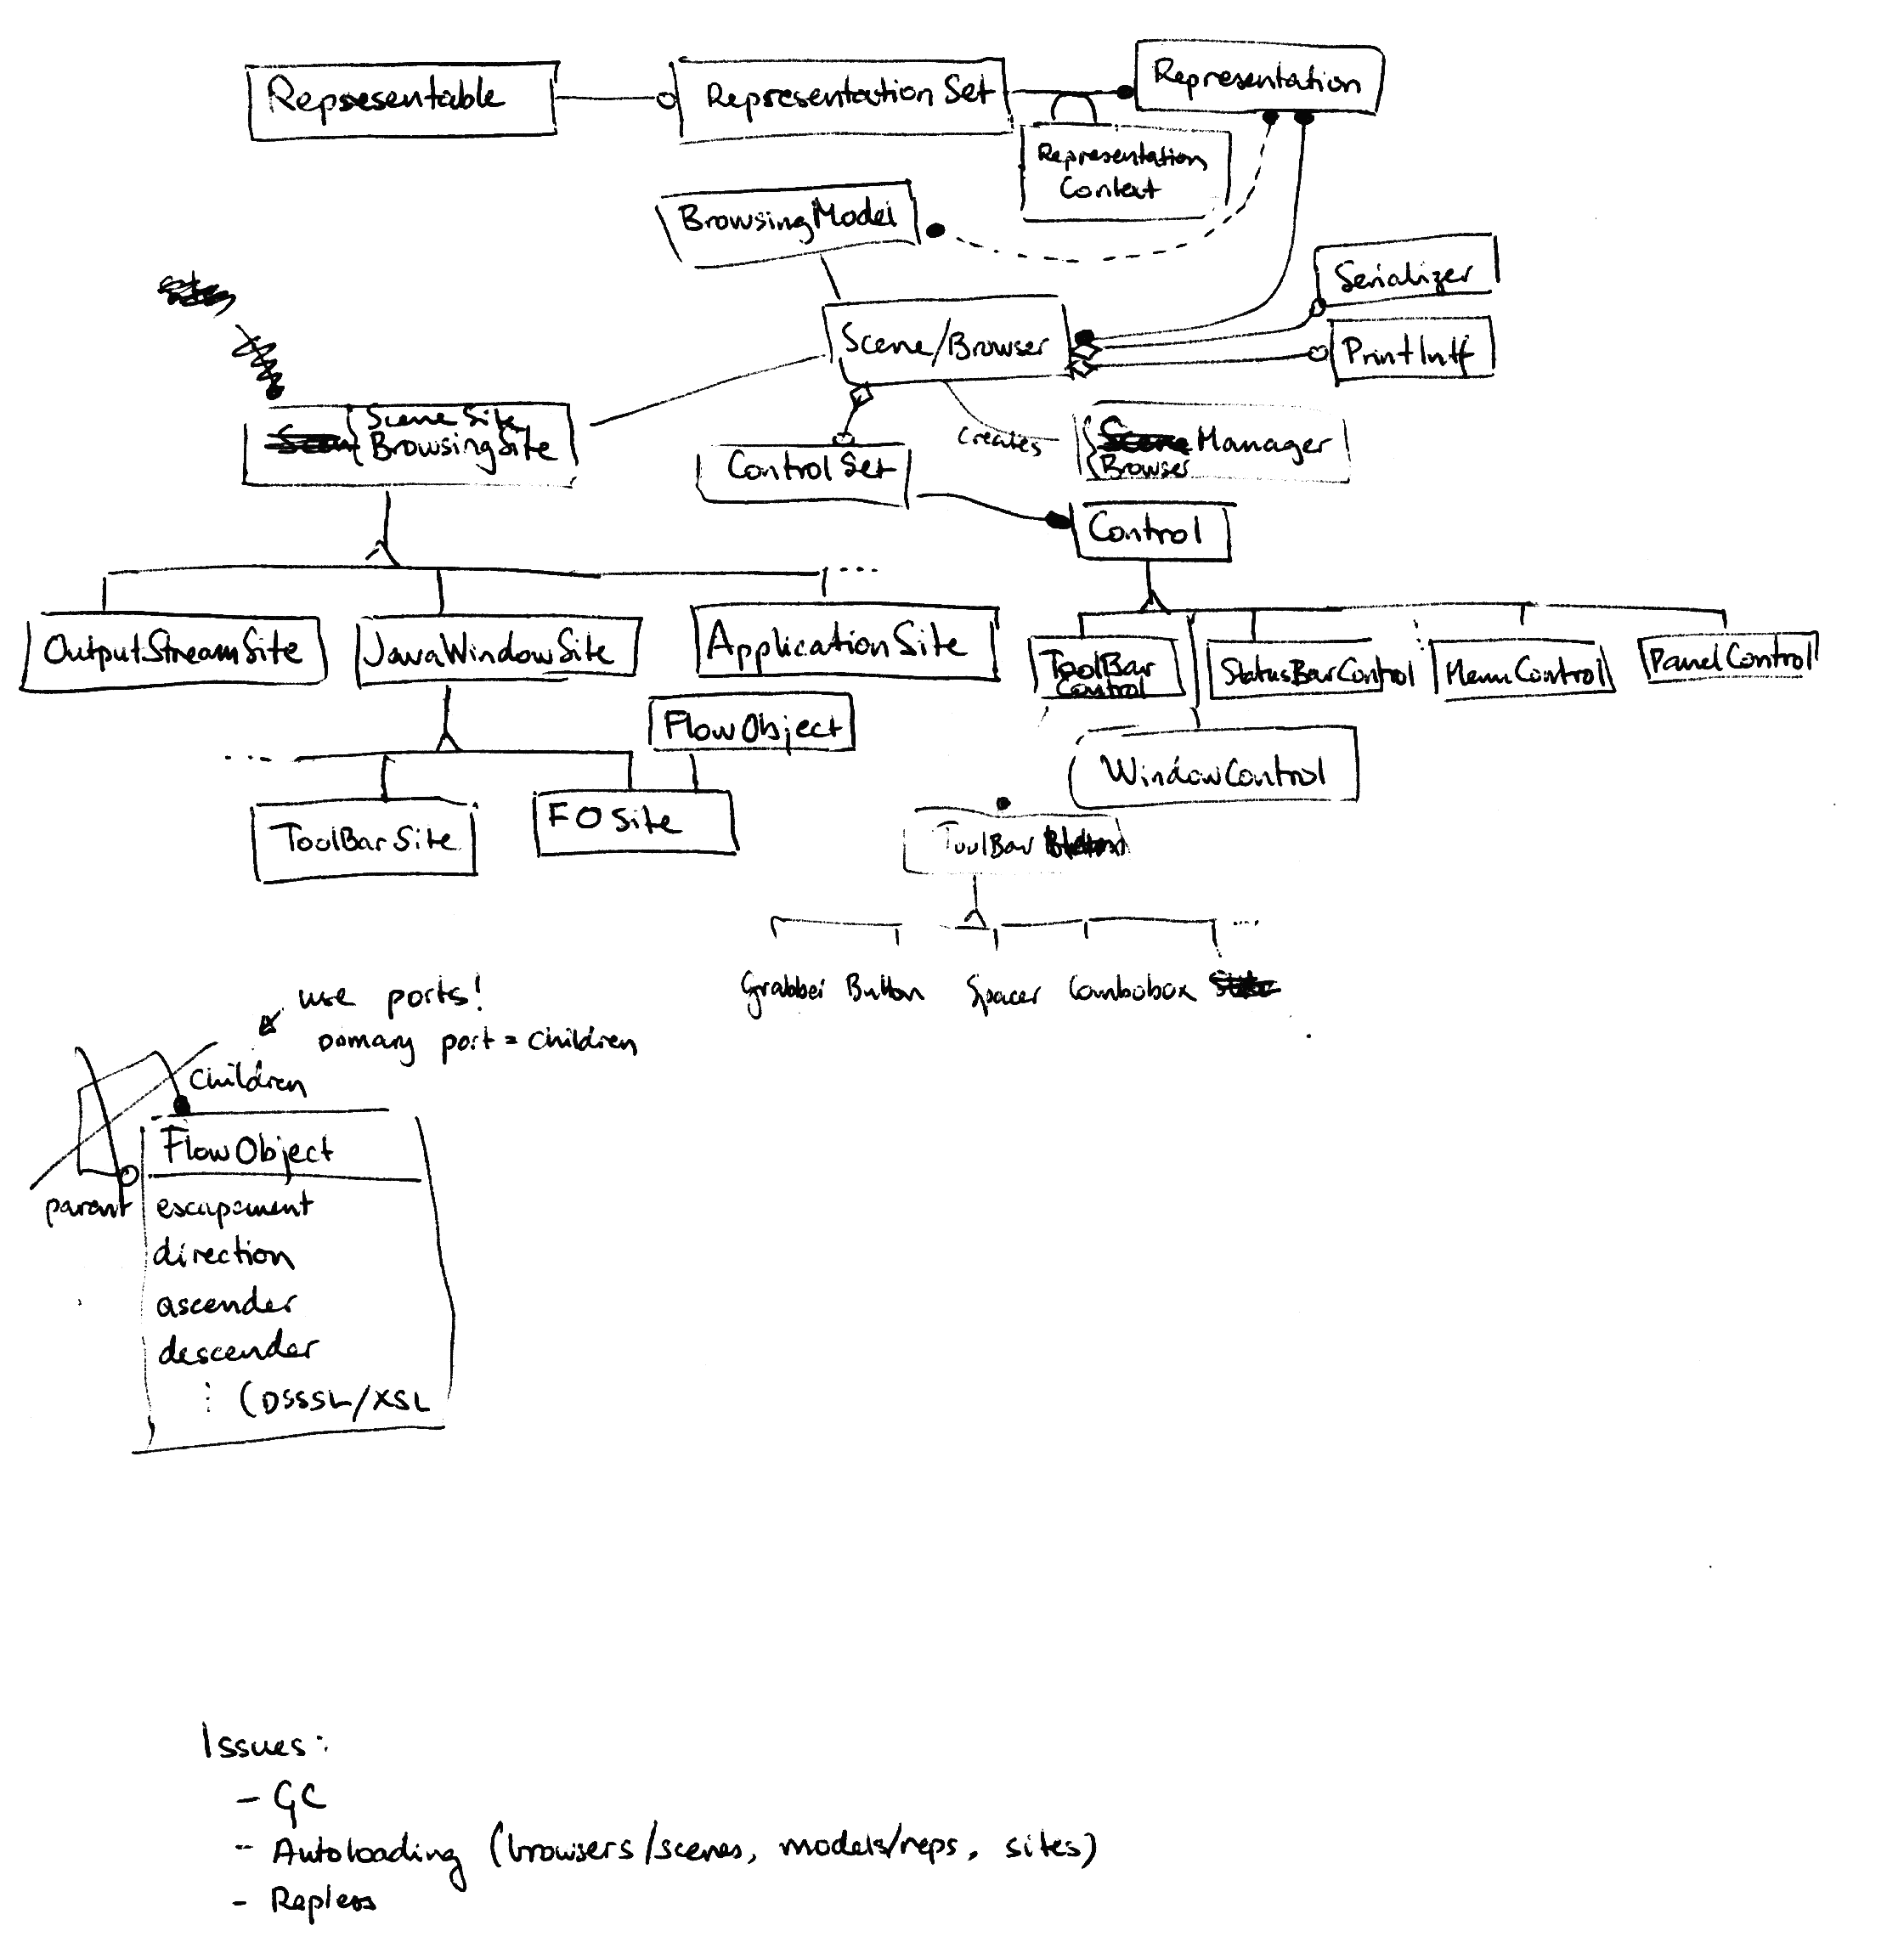 Representable
Representation Set
Representation
Representation
Context
BrowsingModel
Serializer
Scene/Browser
PrintIntf
SceneSite
BrowsingSite
creates
Manager
Browser
ControlSet
Control
OutputStreamSite
JavaWindowSite
ApplicationSite
ToolBar
Control
StatusBarControl
MenuControl
PanelControl
FlowObject
WindowControl
ToolBarSite
FOSite
ToolBar
Grabber Button Spacer Combobox
use ports!
primary port = children
children
FlowObject
parent
escapement
direction
ascender
descender
(DSSSL/XSL
Issues:
- GC
- Autoloading (browsers/scenes, models/reps, sites)
- Repless